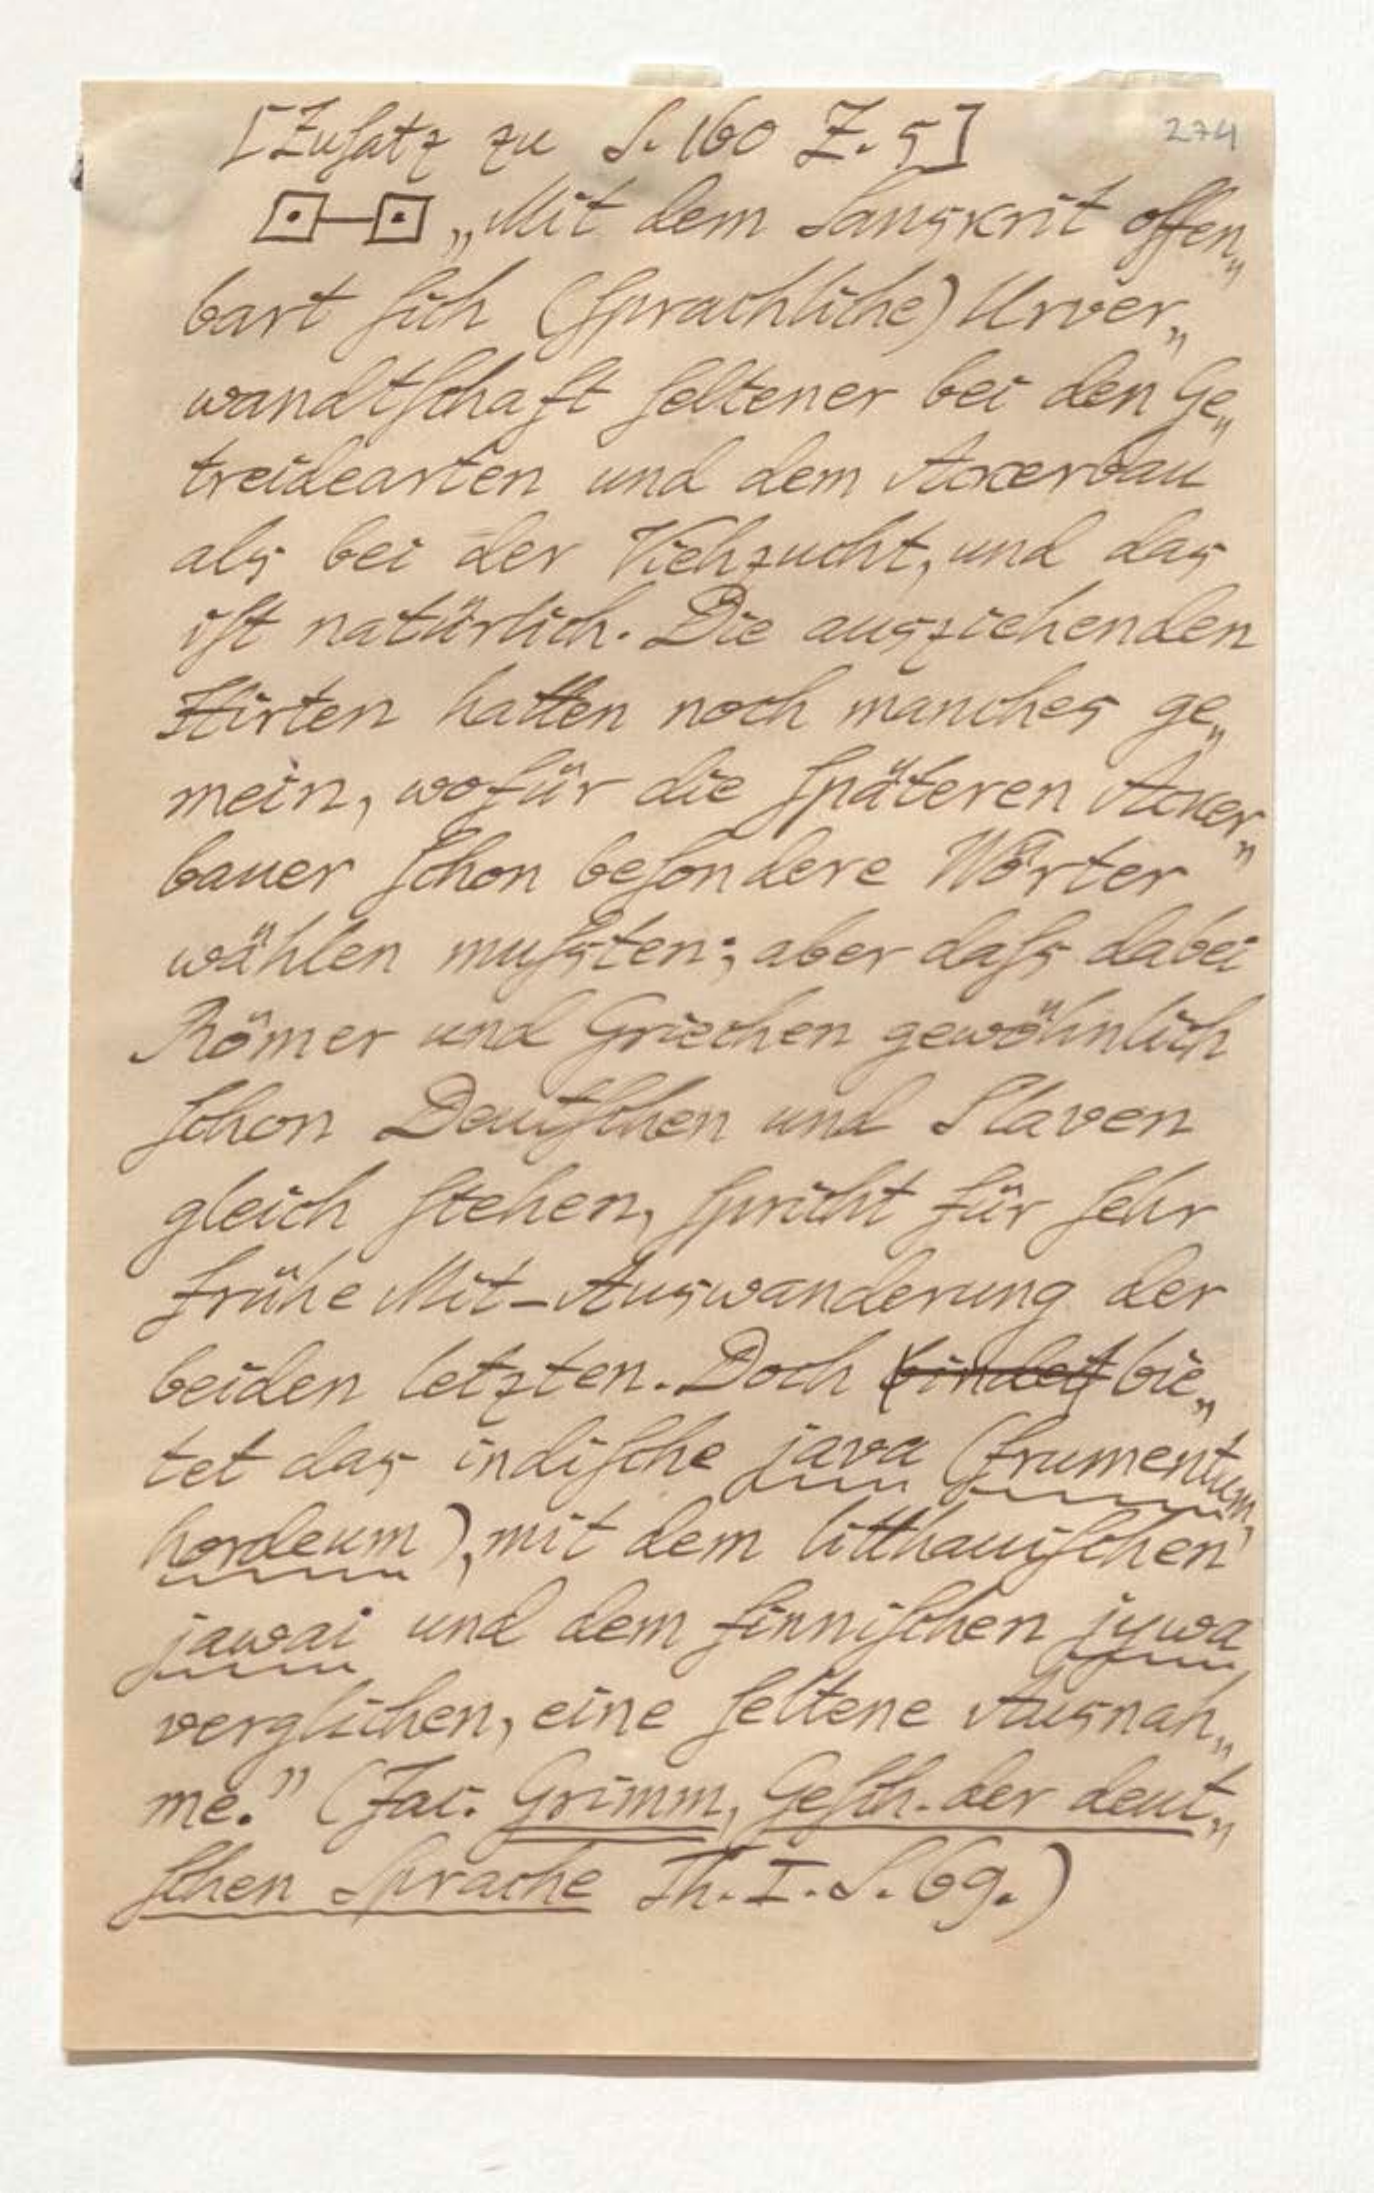 [Zuſatz zu S. 160 Z. 5]
274
„Mit dem Sanskrit offen„
bart ſich (ſprachliche) Urver„
wandtſchaft ſeltener bei den Ge„
treidearten und dem Ackerbau
als bei der Viehzucht, und das
iſt natürlich. Die ausziehenden
Hirten hatten noch manches ge„
mein, wofür die ſpäteren Acker„
bauer ſchon beſondere Wörter
wählen muſsten; aber daſs dabei
Römer und Griechen gewöhnlich
ſchon Deutſchen und Slaven
gleich ſtehen, ſpricht für ſehr
frühe Mit-Auswanderung der
beiden letzten. Doch findet bie„
tet das indiſche java (frumentum,
hordeum), mit dem litthauiſchen
jawai und dem finniſchen jywa
verglichen, eine ſeltene Ausnah„
me.” (Jac. Grimm, Geſch. der deut„
ſchen Sprache Th. I. S. 69.)